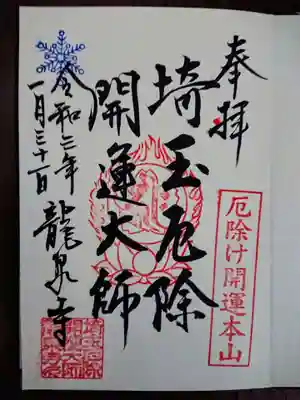 奉拝
厄除け開運本山
埼玉厄除
開運大師
令和三年
一月三十一日
龍泉寺